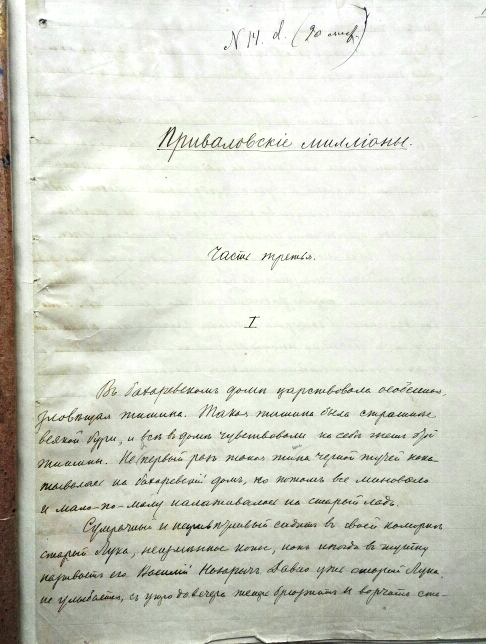 N 14. d. (90 лист.)
Приваловскіе милліоны.
Часть третья.
I
Въ бахаревскомъ домѣ царствовала особенная,
зловѣщая тишина. Такая тишина была страшнѣе
всякой бури, и всѣ въ домѣ чувствовали на себѣ гнетъ этой
тишины. Не первый разъ такая черной тучей
на бахаревскій домъ, но потомъ все миновало
и мало-по-малу налаживалось на старый ладъ.
Сумрачный и сидитъ въ своей каморкѣ
старый Лука, какъ иногда въ шутку
называетъ его Василій Назарычъ. Давно уже старый Лука
не улыбается, съ утра до вечера и ворчитъ